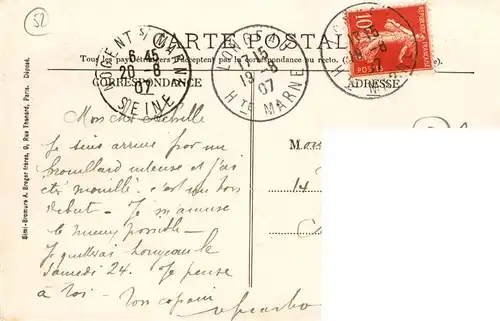 52
CARTE POSTALE
Tous les pays étrangers n'acceptent pas la correspondance au recto.
CORRESPONDANCE
ADRESSE
NOGENT S/ MARNE
6 45
20 - 8
07
SEINE
LONGEAU
17 15
19 - 8
07
HTE MARNE
10
Simi-Bromure A. Breger frères, 9, Rue Thenard, Paris. Déposé.
Mon cher Achille
Je suis arrivé par un
brouillard intense et j'ai
été mouillé - c'est un bon
début - Je m'amuse
le mieux possible -
Je quitterai Longeau le
Samedi 24. Je pense
à toi - Ton copain
M
14